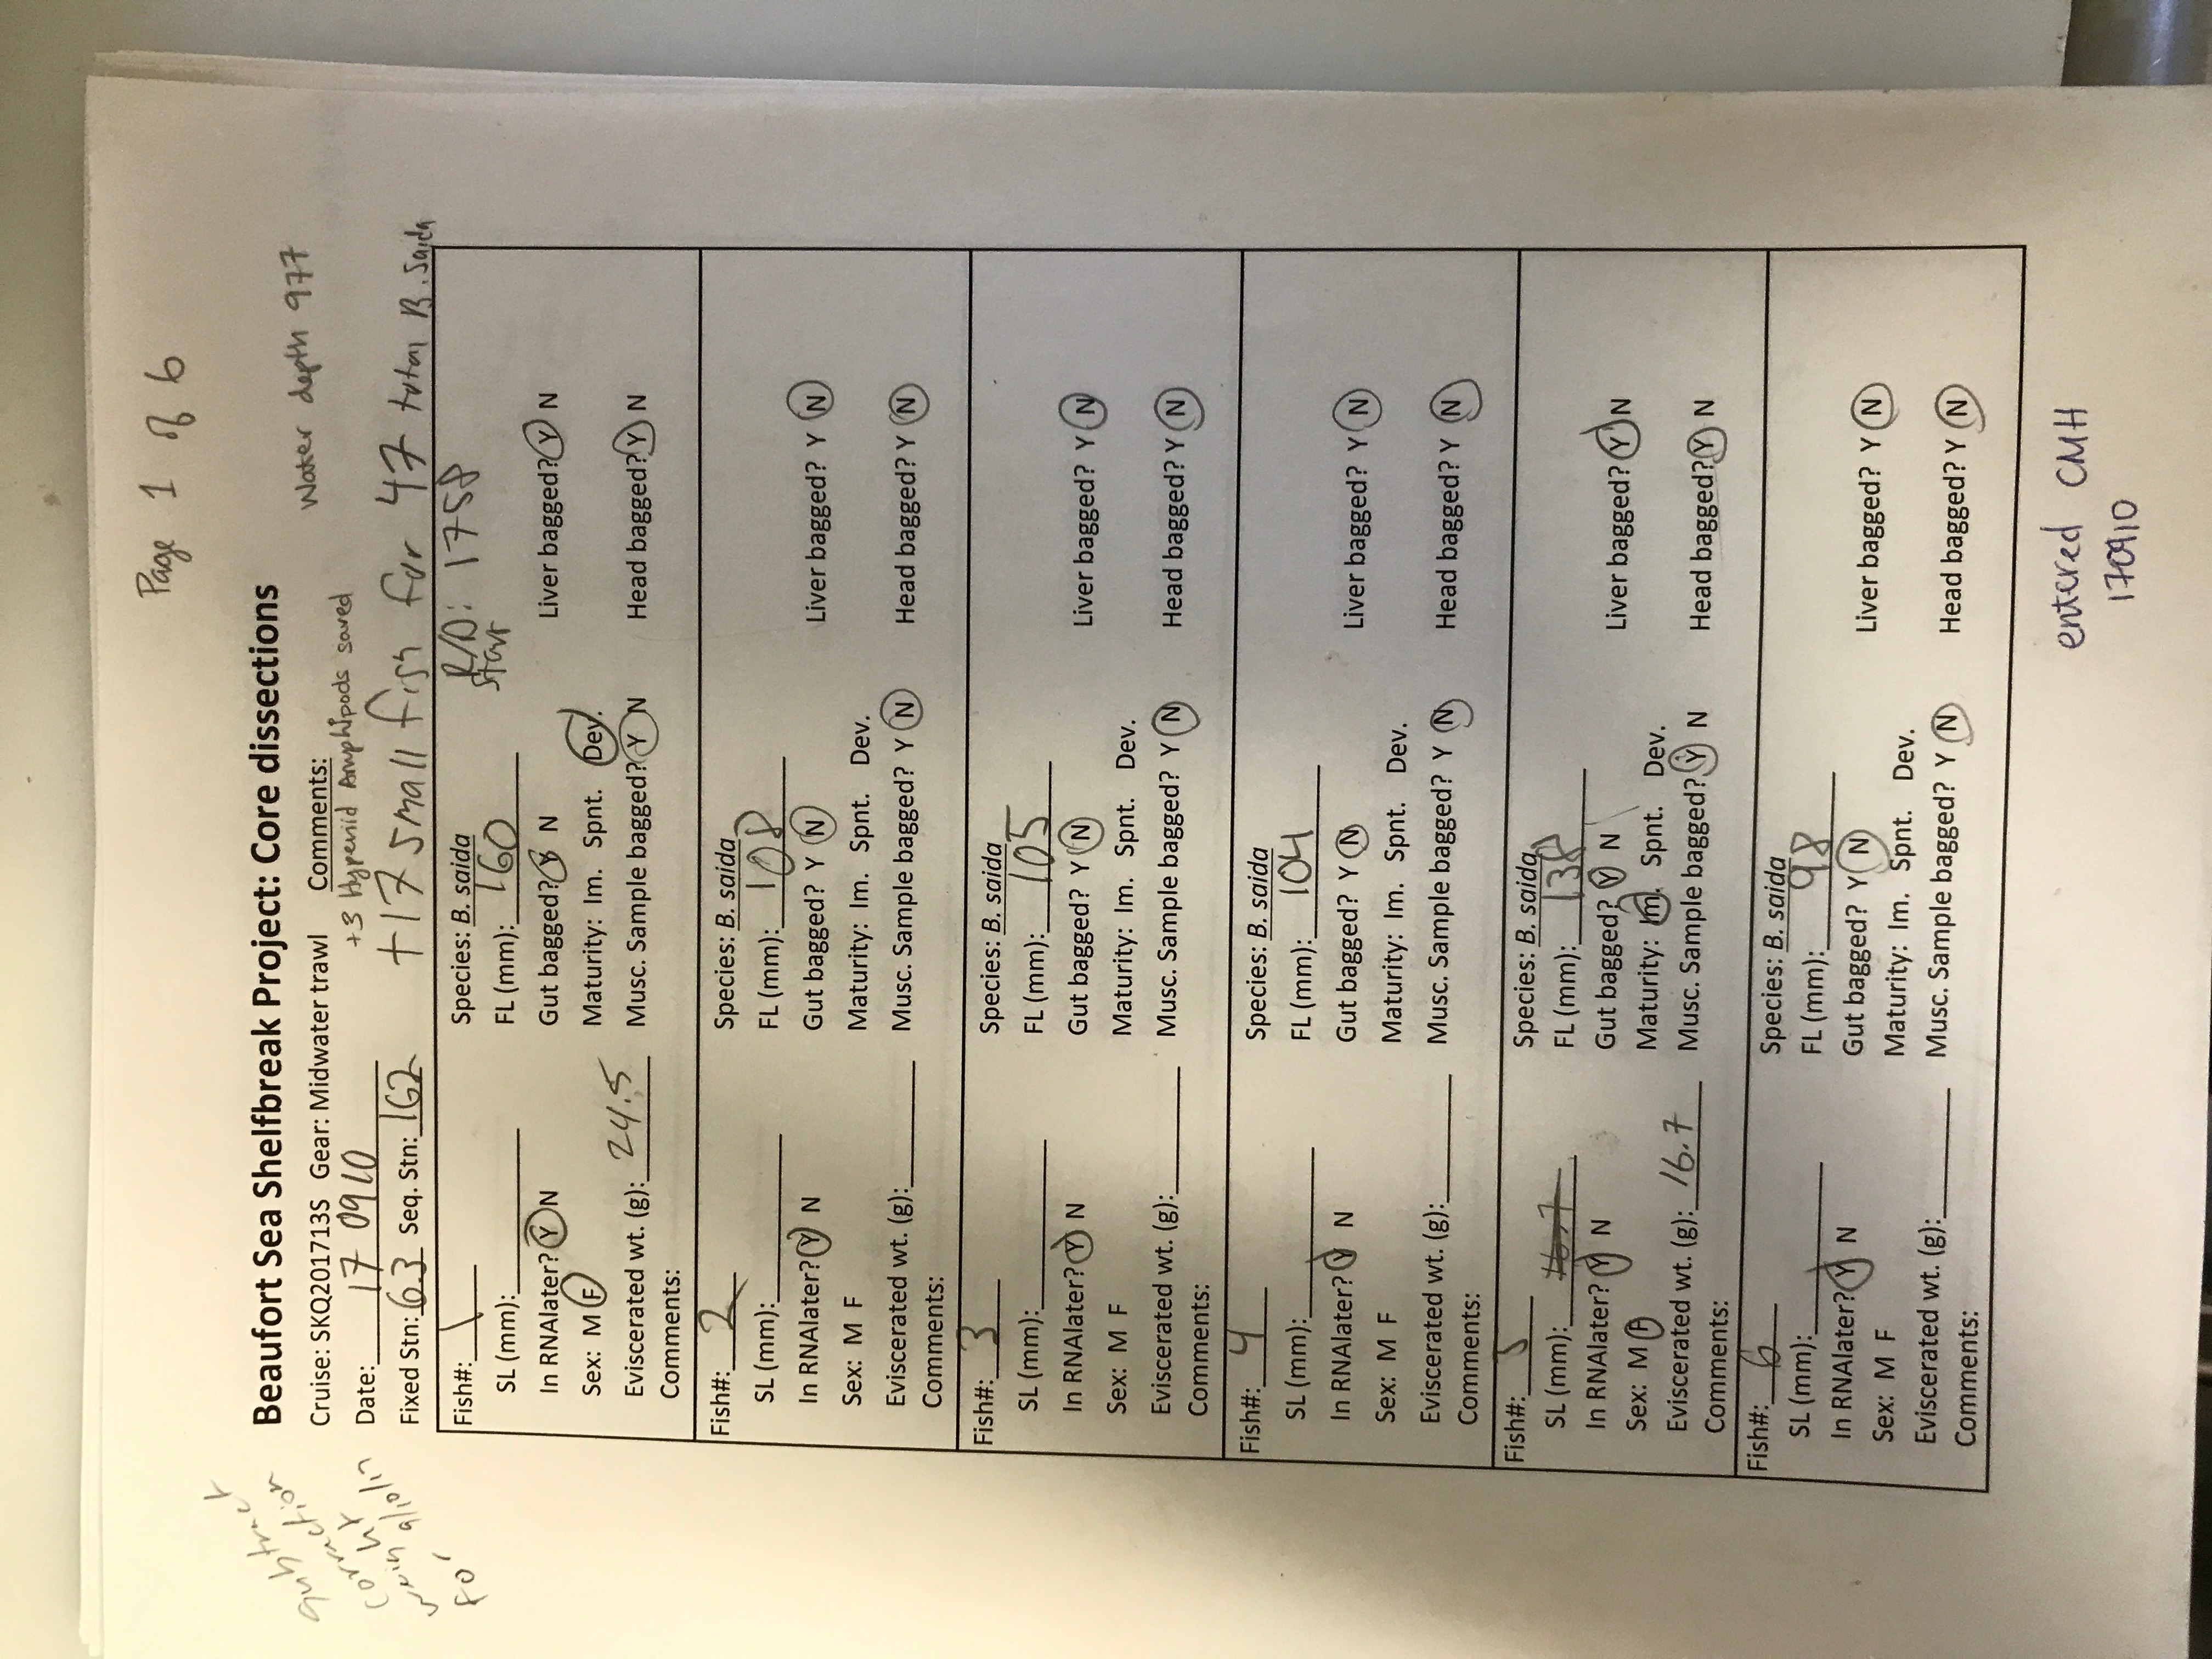 Page 1 of 6
Water depth 977
subtract
correction
weight
for 9/10/17
Beaufort Sea Shelfbreak Project: Core dissections
Cruise: SKQ201713S Gear: Midwater trawl Comments:
+3 Hyperiid Amphipods saved
Date: 170910
Fixed Stn: 63 Seq. Stn: 162 +17 small fish for 47 total B. saida
R/D: 1758
start
Fish#: 1 Species: B. saida
SL (mm): FL (mm): 160
In RNAlater? Y N Gut bagged? Y N Liver bagged? Y N
Sex: M F Maturity: Im. Spnt. Dev.
Eviscerated wt. (g): 24.5 Musc. Sample bagged? Y N Head bagged? Y N
Comments:
Fish#: 2 Species: B. saida
SL (mm): FL (mm): 108
In RNAlater? Y N Gut bagged? Y N Liver bagged? Y N
Sex: M F Maturity: Im. Spnt. Dev.
Eviscerated wt. (g): Musc. Sample bagged? Y N Head bagged? Y N
Comments:
Fish#: 3 Species: B. saida
SL (mm): FL (mm): 105
In RNAlater? Y N Gut bagged? Y N Liver bagged? Y N
Sex: M F Maturity: Im. Spnt. Dev.
Eviscerated wt. (g): Musc. Sample bagged? Y N Head bagged? Y N
Comments:
Fish#: 4 Species: B. saida
SL (mm): FL (mm): 104
In RNAlater? Y N Gut bagged? Y N Liver bagged? Y N
Sex: M F Maturity: Im. Spnt. Dev.
Eviscerated wt. (g): Musc. Sample bagged? Y N Head bagged? Y N
Comments:
Fish#: 5 Species: B. saida
SL (mm): 16.7 FL (mm): 138
In RNAlater? Y N Gut bagged? Y N Liver bagged? Y N
Sex: M F Maturity: Im. Spnt. Dev.
Eviscerated wt. (g): 16.7 Musc. Sample bagged? Y N Head bagged? Y N
Comments:
Fish#: 6 Species: B. saida
SL (mm): FL (mm): 98
In RNAlater? Y N Gut bagged? Y N Liver bagged? Y N
Sex: M F Maturity: Im. Spnt. Dev.
Eviscerated wt. (g): Musc. Sample bagged? Y N Head bagged? Y N
Comments:
entered CMH
170910